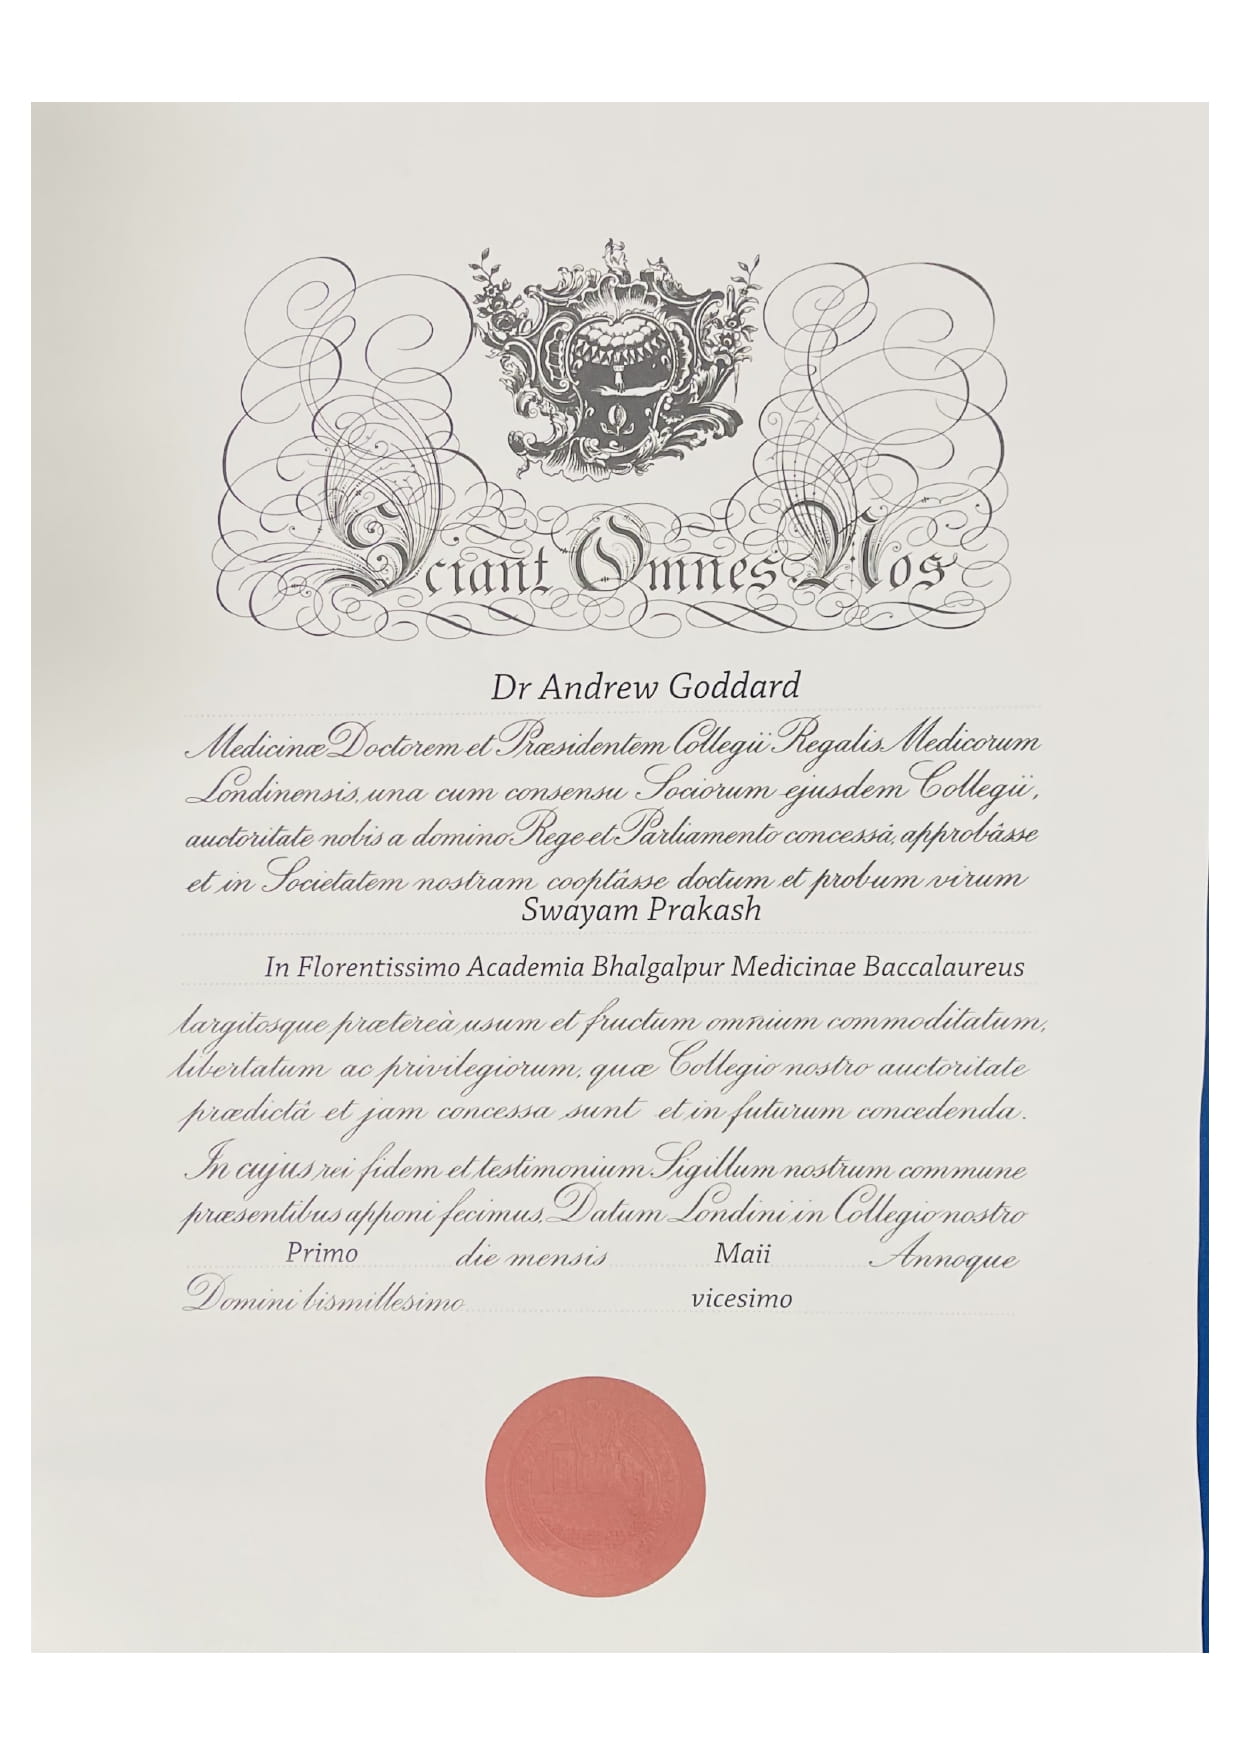 Sciant Omnes Nos
Dr Andrew Goddard
Medicinæ Doctorem et Præsidentem Collegii Regalis Medicorum
Londinensis, una cum consensu Sociorum ejusdem Collegii,
auctoritate nobis a domino Rege et Parliamento concessâ, approbâsse
et in Societatem nostram cooptâsse doctum et probum virum
Swayam Prakash
In Florentissimo Academia Bhalgalpur Medicinae Baccalaureus
largitosque prætereà usum et fructum omnium commoditatum,
libertatum ac privilegiorum, quæ Collegio nostro auctoritate
prædictâ et jam concessa sunt et in futurum concedenda.
In cujus rei fidem et testimonium Sigillum nostrum commune
præsentibus apponi fecimus, Datum Londini in Collegio nostro
Primo die mensis Maii Annoque
Domini bismillesimo vicesimo